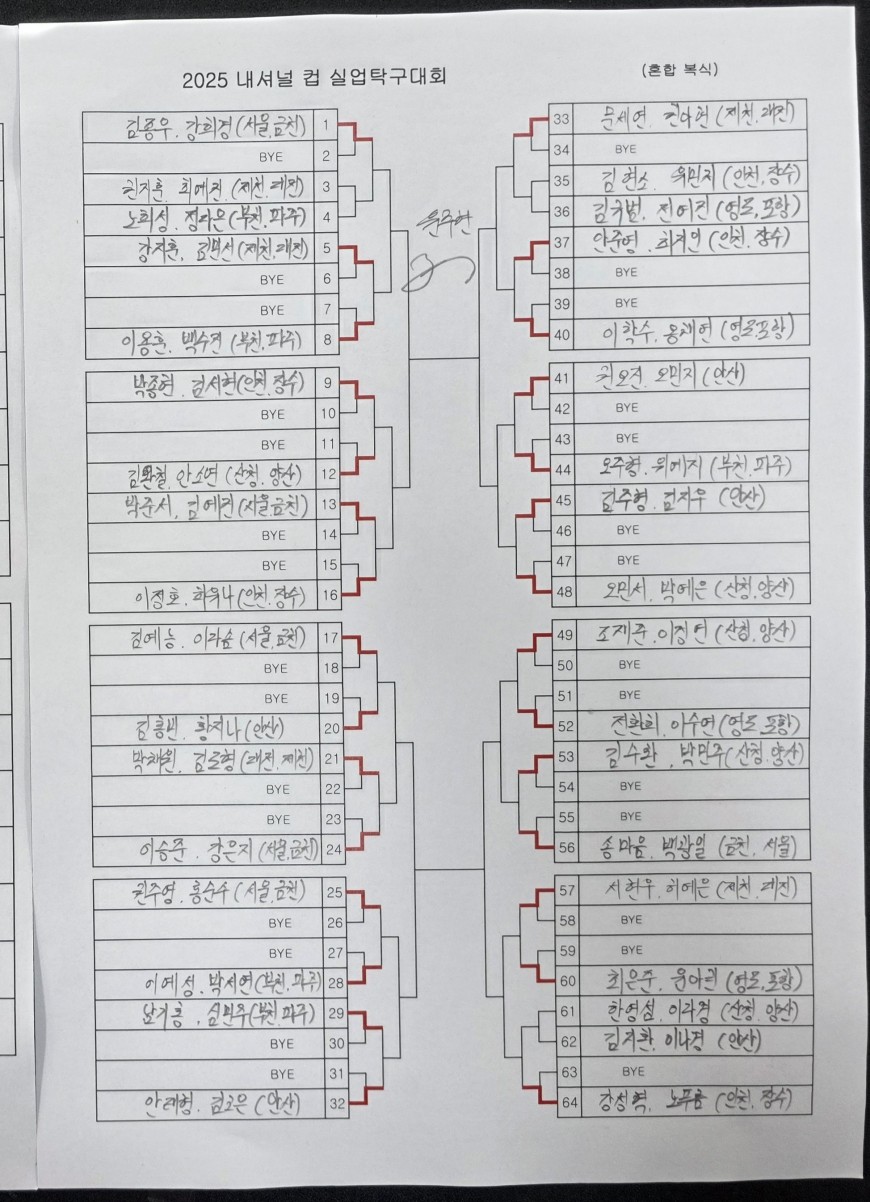 2025 내셔널 컵 실업탁구대회
(혼합 복식)
강희경 (서울,금천) 1
BYE 2
권지훈, 최예진, (제천,대전) 3
노희성, 정다은 (부천,파주) 4
강지훈, 김민선 (제천,대전) 5
BYE 6
BYE 7
이용훈, (부천.파주) 8
박종현, 김서현 (인천,장수) 9
BYE 10
BYE 11
안소연 (산청.양산) 12
박준서, 김예진 (서울금천) 13
BYE 14
BYE 15
이정호, 최유나 (인천,장수) 16
이라숨 (서울,금천) 17
BYE 18
BYE 19
김홍빈, 황지나 (안산) 20
박채원, (대전,제천) 21
BYE 22
BYE 23
이승준, 강은지 (서울,금천) 24
홍순수 (서울,금천) 25
BYE 26
BYE 27
이예성, 박서연 (부천,파주) 28
남기홍, 심현주 (부천.파주) 29
BYE 30
BYE 31
안재형, (안산) 32
윤주현
33 문세연, (제천,대전)
34 BYE
35 김현소, 유민지 (인천,장수)
36 전여진 (영도,포항)
37 안준영, (인천,장수)
38 BYE
39 BYE
40 이학수, 옹채연 (영도.포항)
41 권오진, 오민지 (안산)
42 BYE
43 BYE
44 오주형, 위예지 (부천.파주)
45 김주형, 김지우 (안산)
46 BYE
47 BYE
48 오민서, 박예은 (산청.양산)
49 조재준, 이정연 (산청.양산)
50 BYE
51 BYE
52 전환희, 이수연 (영도.포항)
53 김수환, 박민주 (산청.양산)
54 BYE
55 BYE
56 송마음, 백광일 (금천, 서울)
57 서현우, 허예은 (제천,대전)
58 BYE
59 BYE
60 최은준, 윤아린 (영도,포항)
61 한영섬, 이라경 (산청.양산)
62 김지환, 이나경 (안산)
63 BYE
64 강성혁, 노푸름 (인천,장수)